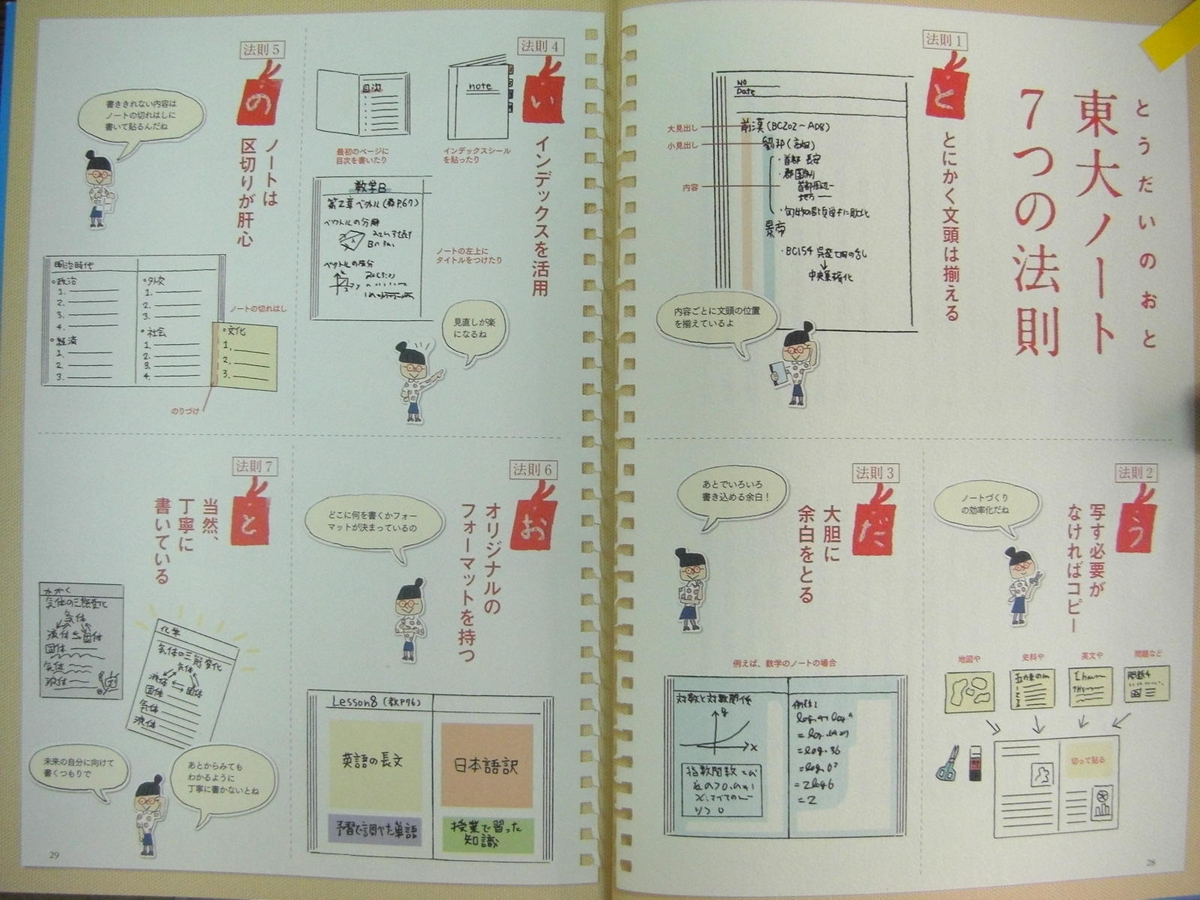 とうだいのおと
東大ノート
7つの法則
法則1
と
とにかく文頭は揃える
No
Date
大見出し
小見出し
内容
前漢(BC202〜AD8)
劉邦(高祖)
・首都 長安
・郡国制
首都周辺ー
地方ー
景帝
・BC154 呉楚七国の乱
中央集権化
内容ごとに文頭の位置
を揃えているよ
法則2
う
写す必要が
なければコピー
ノートづくり
の効率化だね
地図や
史料や
英文や
問題など
切って貼る
法則3
だ
大胆に
余白をとる
あとでいろいろ
書き込める余白!
例えば、数学のノートの場合
対数と対数関係
y
x
指数関数
=2
28
法則4
い
インデックスを活用
目次
note
最初のページに
目次を書いたり
インデックスシール
を貼ったり
数学B
第2章 ベクトル(教P.67)
ベクトルの分解
ベクトルの成分
ノートの左上に
タイトルをつけたり
見直しが楽
になるね
法則5
の
ノートは
区切りが肝心
書ききれない内容は
ノートの切れはしに
書いて貼るんだね
明治時代
・政治
1.
2.
3.
4.
・経済
1.
2.
3.
・外交
1.
2.
3.
・社会
1.
2.
3.
4.
ノートの切れはし
・文化
1.
2.
3.
のりづけ
法則6
お
オリジナルの
フォーマットを持つ
どこに何を書くかフォー
マットが決まっているの
Lesson8 (教P.96)
英語の長文
日本語訳
予習で調べた単語
授業で習った
知識
法則7
と
当然、
丁寧に
書いている
かがく
気体の三態変化
気体
液体
固体
固体
気体
液体
化学
気体の三態変化
気体
液体
固体
固体
気体
液体
未来の自分に向けて
書くつもりで
あとからみても
わかるように
丁寧に書かないとね
29